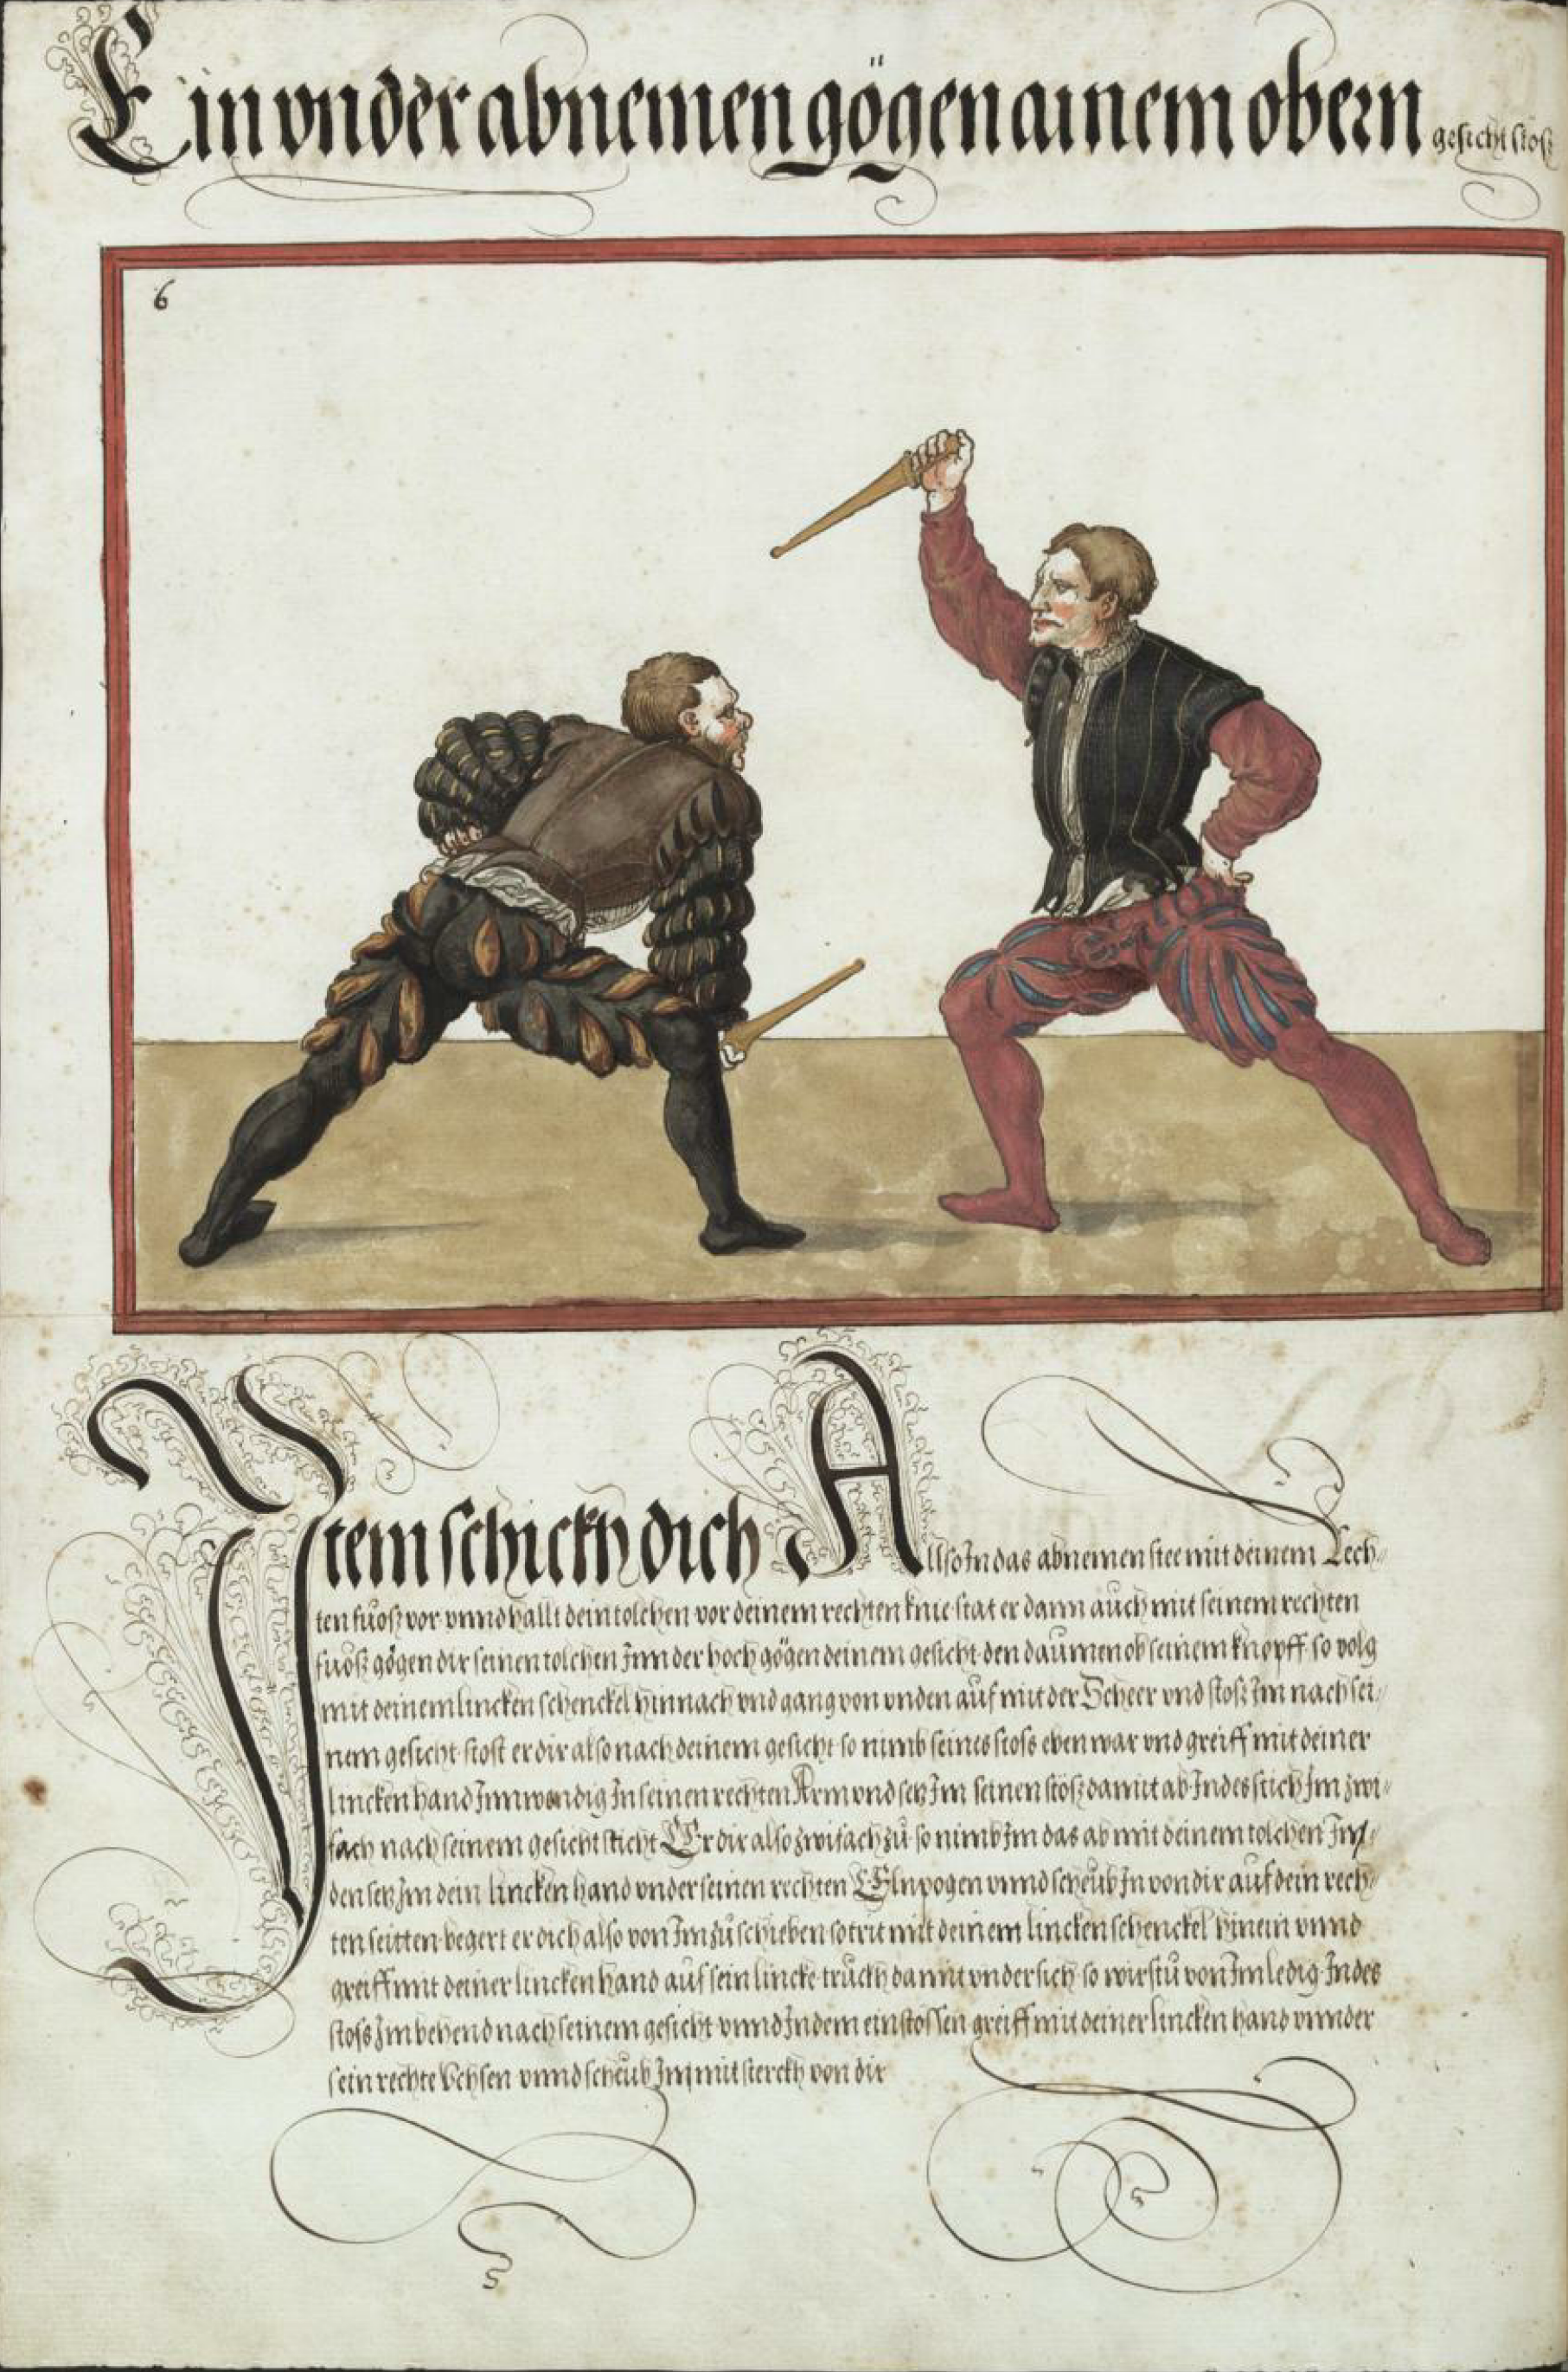 Ein vnder abnemen gögen ainem obern gesicht stoß
6
Item schickh dich Allso In das abnemen stee mit deinem Rech-
ten fuoß vor vnnd hallt dein tolchen vor deinem rechten knie stat er dann auch mit seinem rechten
fuoß gögen dir seinen tolchen Inn der hoch gögen deinem gesicht den daumen ob seinem knopff so volg
mit deinem lincken schenckel hinnach vnd gang von vnden auf mit der Scheer vnd stoß Im nach sei-
nem gesicht stost er dir also nach deinem gesicht so nimb seines stoss eben war vnd greiff mit deiner
lincken hand Innwendig In seinen rechten Arm vnd setz Im seinen stoß damit ab Indes stich Im zwi-
fach nach seinem gesicht sticht Er dir also zwifach zů so nimb Im das ab mit deinem tolchen In
den setz Im dein lincken hand vnder seinen rechten Elnpogen vnnd scheub In von dir auf dein rech-
ten seitten begert er dich also von Im zů schieben so trit mit deinem lincken schenckel hinein vnnd
greiff mit deiner lincken hand auf sein lincke truckh damit vndersich so wirstu von Im ledig Indes
stoss Im behend nach seinem gesicht vnnd In dem einstossen greiff mit deiner lincken hand vnnder
sein rechte Vchsen vnnd scheub Im mit sterckh von dir